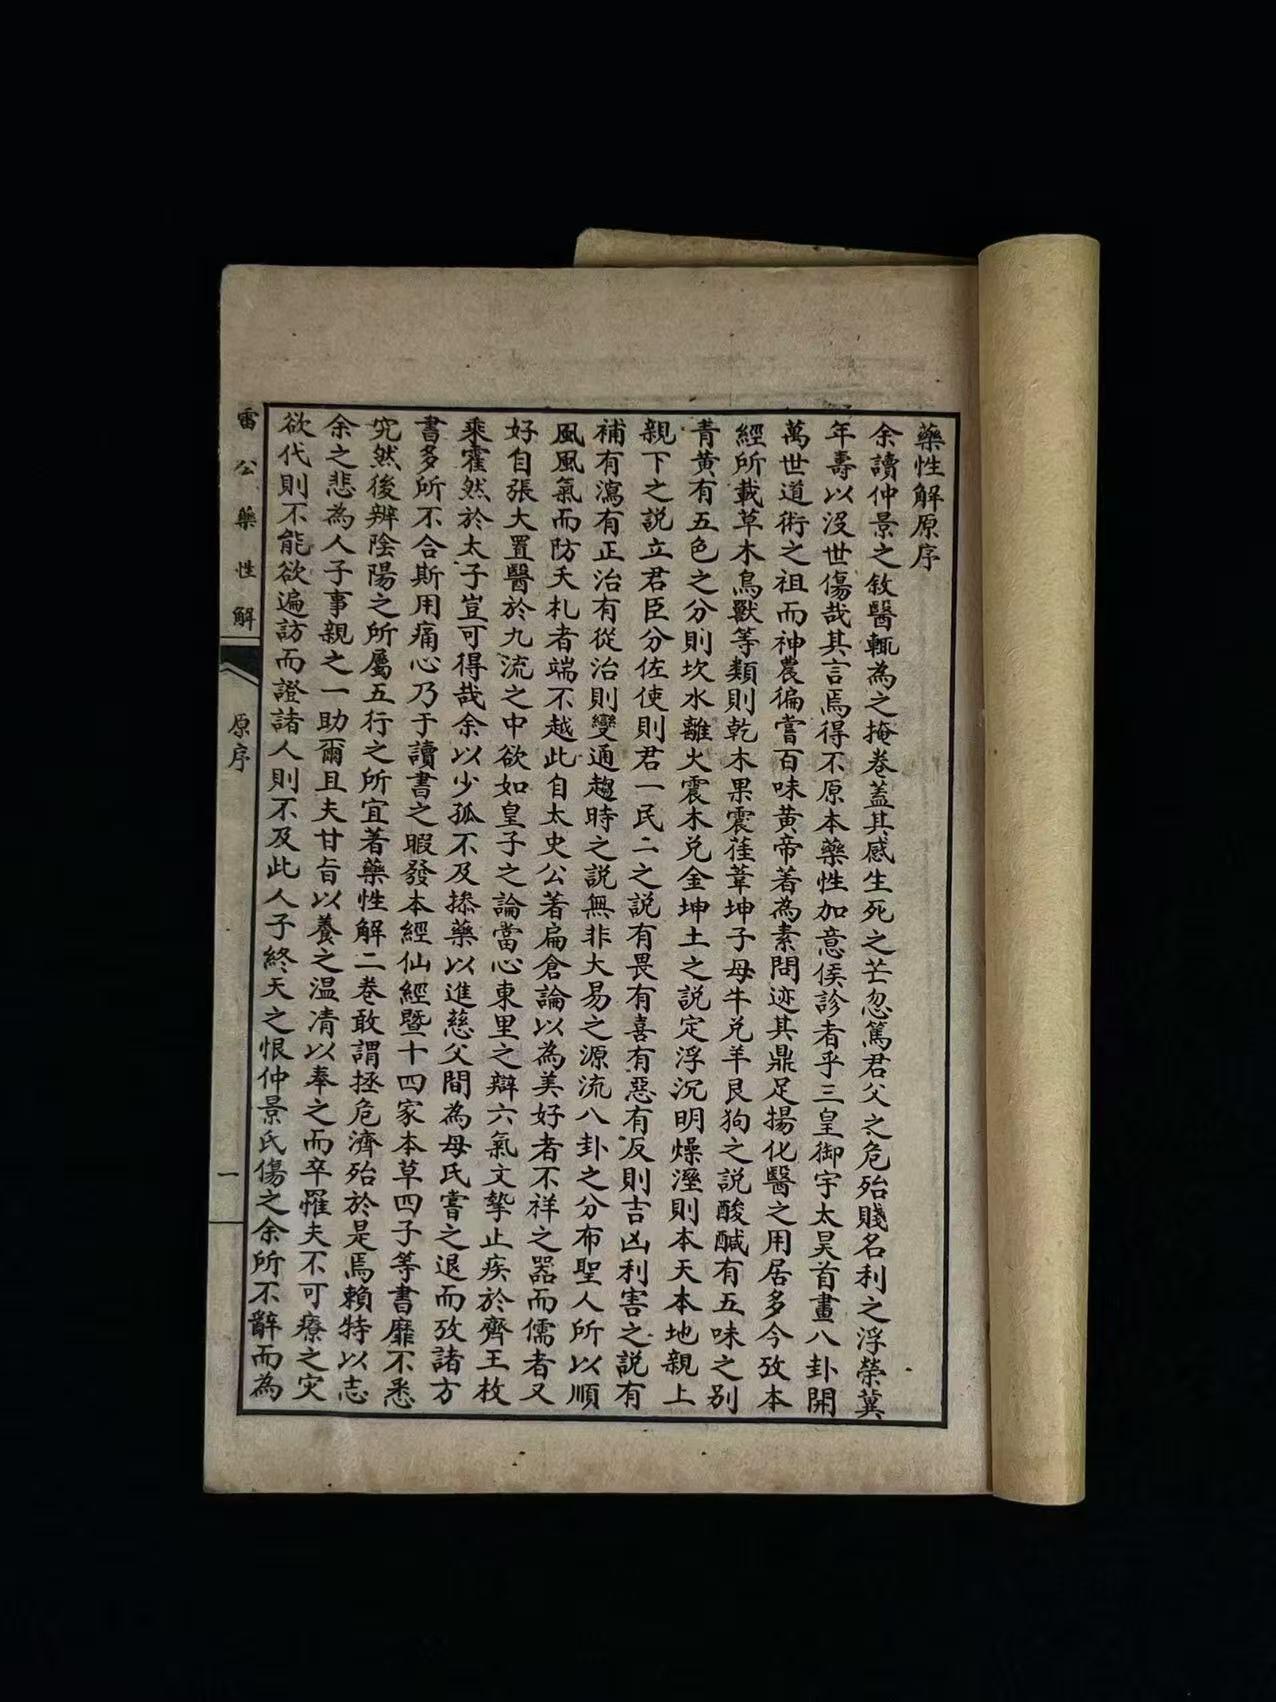 藥性解原序
余讀仲景之敘醫輒為之掩卷蓋其感生死之芒忽篤君父之危殆賤名利之浮榮冀
年壽以沒世傷哉其言焉得不原本藥性加意侯診者乎三皇御宇太昊首畫八卦開
萬世道術之祖而神農徧嘗百味黃帝著為素問迹其鼎足揚化醫之用居多今攷本
經所載草木鳥獸等類則乾木果震萑葦坤子母牛兌羊艮狗之說酸鹹有五味之別
青黃有五色之分則坎水離火震木兌金坤土之說定浮沉明燥溼則本天本地親上
親下之說立君臣分佐使則君一民二之說有畏有喜有惡有反則吉凶利害之說有
補有瀉有正治有從治則變通趨時之說無非大易之源流八卦之分布聖人所以順
風風氣而防夭札者端不越此自太史公著扁倉論以為美好者不祥之器而儒者又
好自張大置醫於九流之中欲如皇子之論當心東里之辯六氣文摯止疾於齊王枚
乘霍然於太子豈可得哉余以少孤不及掭藥以進慈父間為母氏嘗之退而攷諸方
書多所不合斯用痛心乃于讀書之暇發本經仙經暨十四家本草四子等書靡不悉
究然後辨陰陽之所屬五行之所宜著藥性解二卷敢謂拯危濟殆於是焉賴特以志
余之悲為人子事親之一助爾且夫甘旨以養之温凊以奉之而卒罹夫不可療之灾
欲代則不能欲遍訪而證諸人則不及此人子終天之恨仲景氏傷之余所不辭而為
雷公藥性解
原序
一